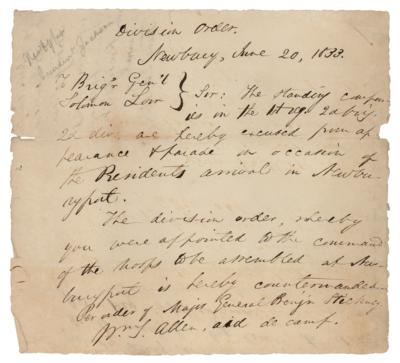 Division Order.
Newbury, June 20, 1833.
To Brig'r Gen'l
Solomon Low
Sir: The Standing compan-
ies in the 1st reg. 2d brig.
2d div. are hereby excused from ap
pearance & parade on occasion of
the Presidents arrival in Newbu-
ryport.
The division order, whereby
you were appointed to the command
of the troops to be assembled at New
buryport is hereby countermanded.
Per order of Major General Benj'n Stickney
Wm S. Allen, aid de camp.
President Jackson